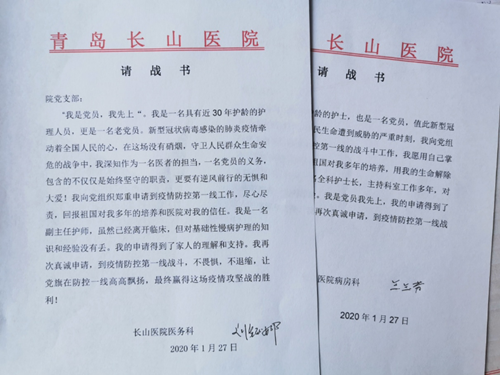 青岛长山医院
请战书
院党支部：
“我是党员，我先上“。我是一名具有近30年护龄的护
理人员，更是一名老党员。新型冠状病毒感染的肺炎疫情牵
动着全国人民的心，在这场没有硝烟，守卫人民群众生命安
危的战争中，我深知作为一名医者的担当，一名党员的义务，
包含的不仅仅是始终坚守的职责，更要有逆风前行的无惧和
大爱！我向党组织郑重申请到疫情防控第一线工作，尽心尽
责，回报祖国对我多年的培养和医院对我的信任。我是一名
副主任护师，虽然已经离开临床，但对基础性慢病护理的知
识和经验没有丢。我的申请得到了家人的理解和支持。我再
次真诚申请，到疫情防控第一线战斗，不畏惧，不退缩，让
党旗在防控一线高高飘扬，最终赢得这场疫情攻坚战的胜
利！
长山医院医务科
2020年1月27日
长山医院
请战书
护龄的护士，也是一名党员，值此新型冠
民生命遭到威胁的严重时刻，我向党组
控第一线的战斗中工作，我愿用自己掌
祖国对我多年的培养，用我的生命解除
名全科护士长，主持科室工作多年，对
是党员我先上，我的申请得到了
再次真诚申请，到疫情防控第一线战
医院病房科
2020年1月27日